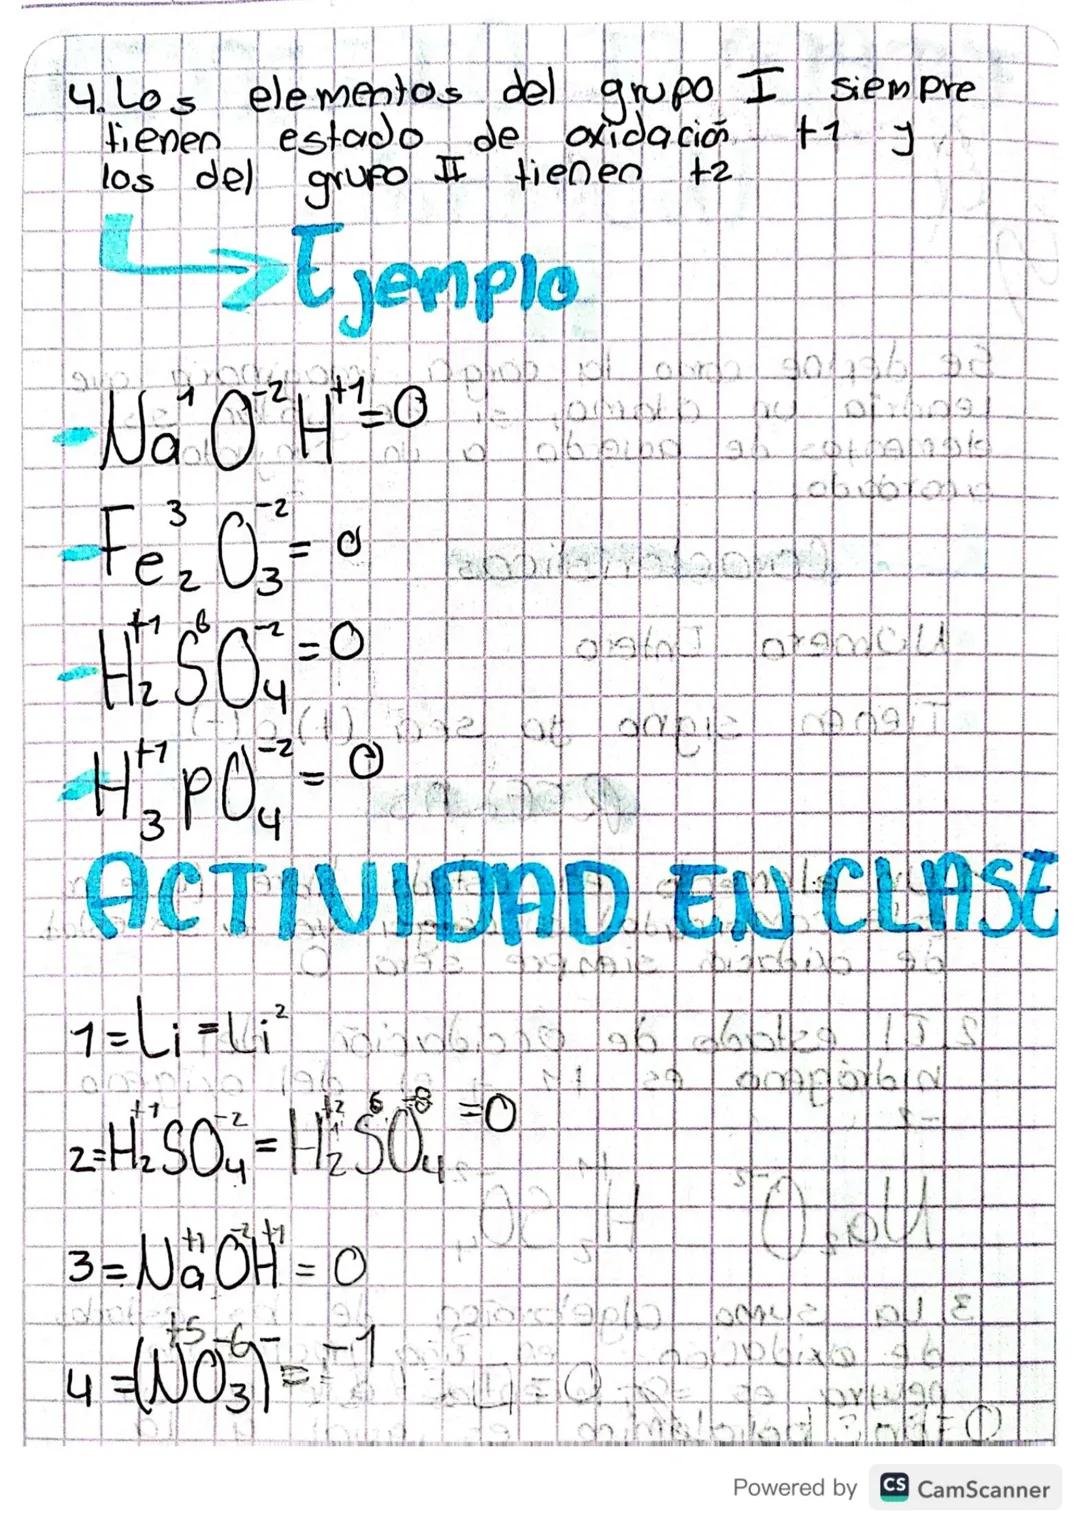 4. Los elementos del grupo I siempre
tienen estado de oxidación +1 y
los del grupo II tienen +2
Ejemplo
- Na⁺¹ O⁻² H⁺¹ = 0
- Fe₂³ O₃⁻² = 0
- H₂⁺¹ S⁶ O₄⁻² = 0
- H₃⁺¹ P O₄⁻² = 0
ACTIVIDAD EN CLASE
1 = Li = Li²
2 = H₂⁺¹ S O₄⁻² = H₂⁺² S⁶ O₄⁻⁸ = 0
3 = Na⁺¹ O⁻² H⁺¹ = 0
4 = (N⁺⁵ O₃⁻⁶)⁻ = -1
Powered by CS CamScanner